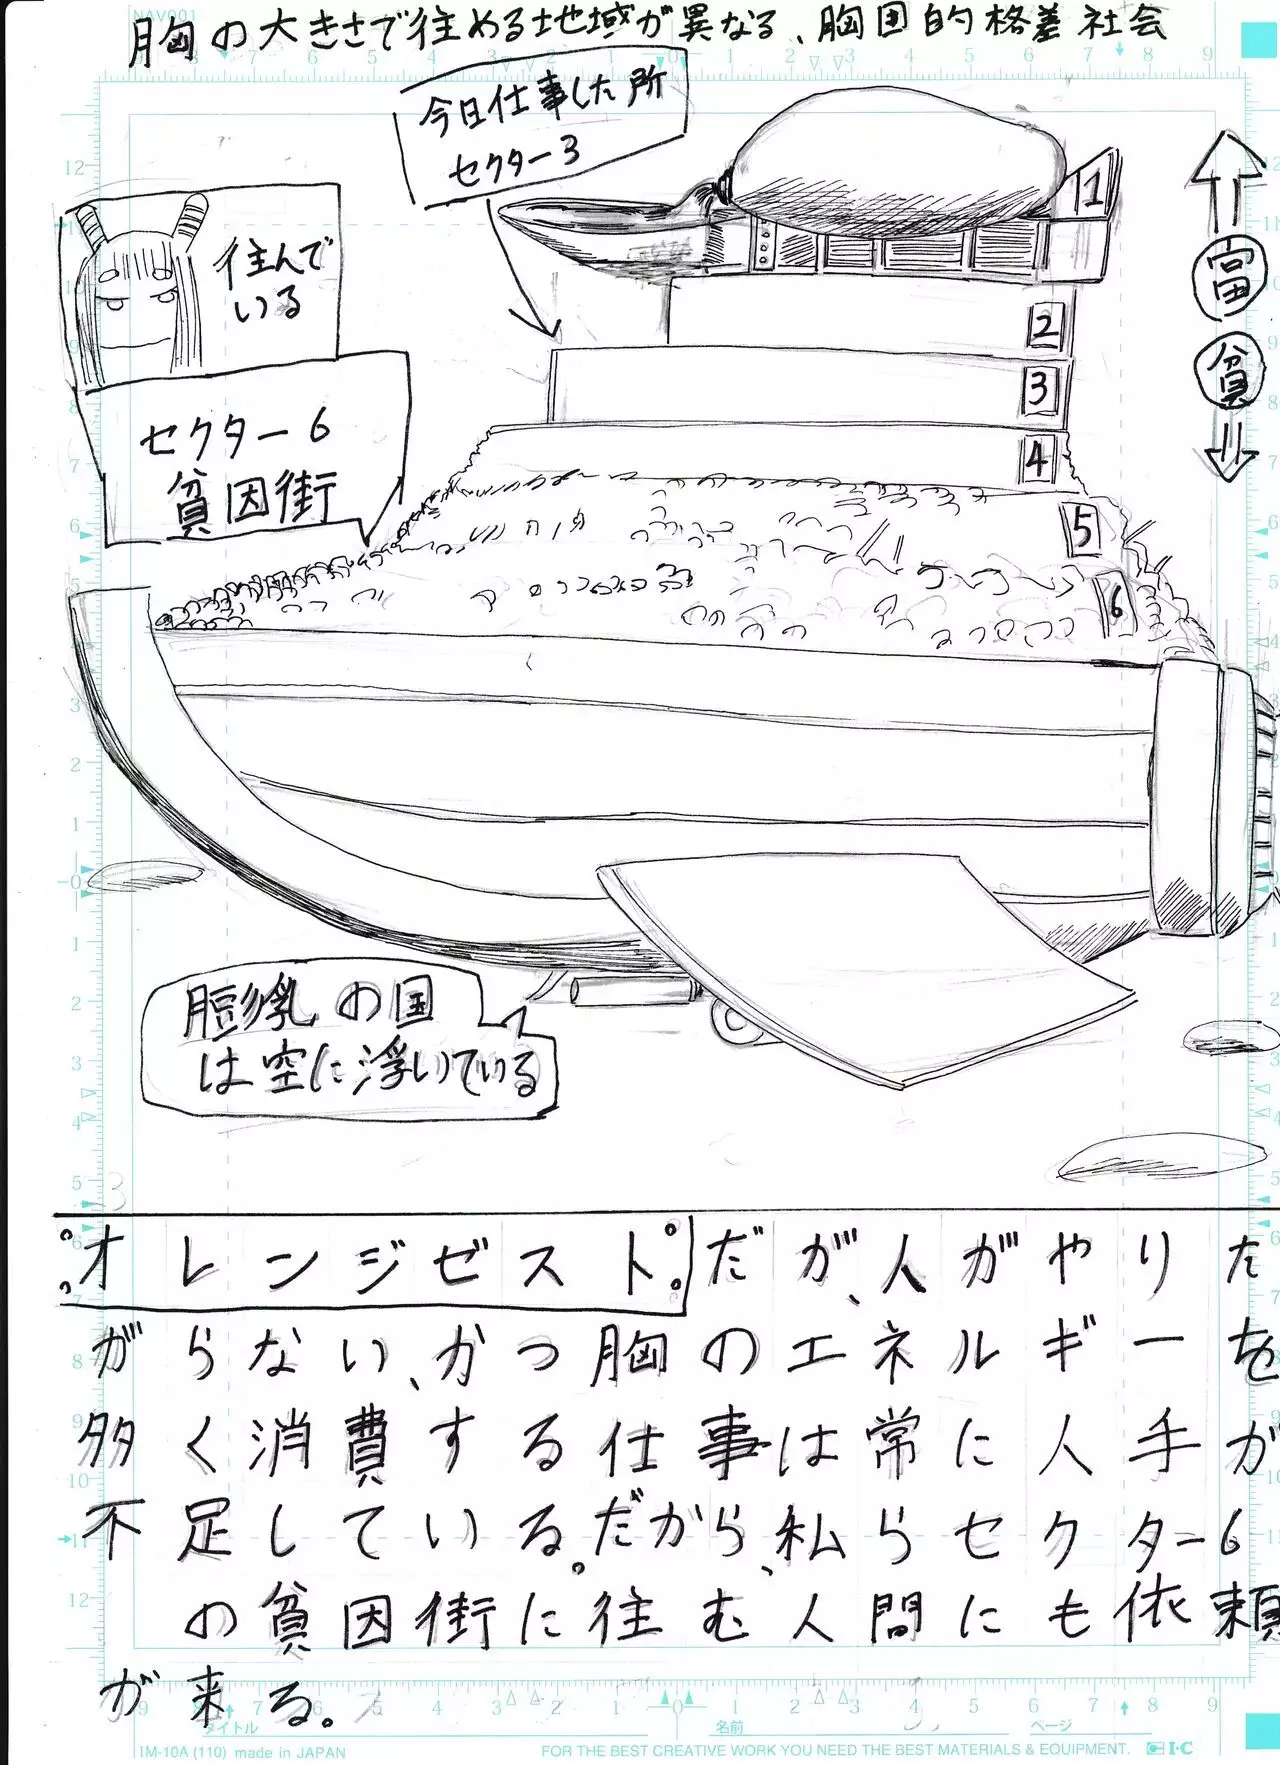 NAV001
胸の大きさで住める地域が異なる、胸囲的格差社会
今日仕事した所
セクター3
住んで
いる
セクター6
貧困街
1
2
3
4
5
6
富
貧
膨乳の国
は空に浮いている
オレンジゼスト だが、人がやりた
がらない、かつ胸のエネルギーを
多く消費する仕事は常に人手が
不足している。だから、私らセクター6
の貧困街に住む人間にも依頼
が来る。
タイトル 名前 ページ
IM-10A (110) made in JAPAN FOR THE BEST CREATIVE WORK YOU NEED THE BEST MATERIALS & EQUIPMENT. I·C